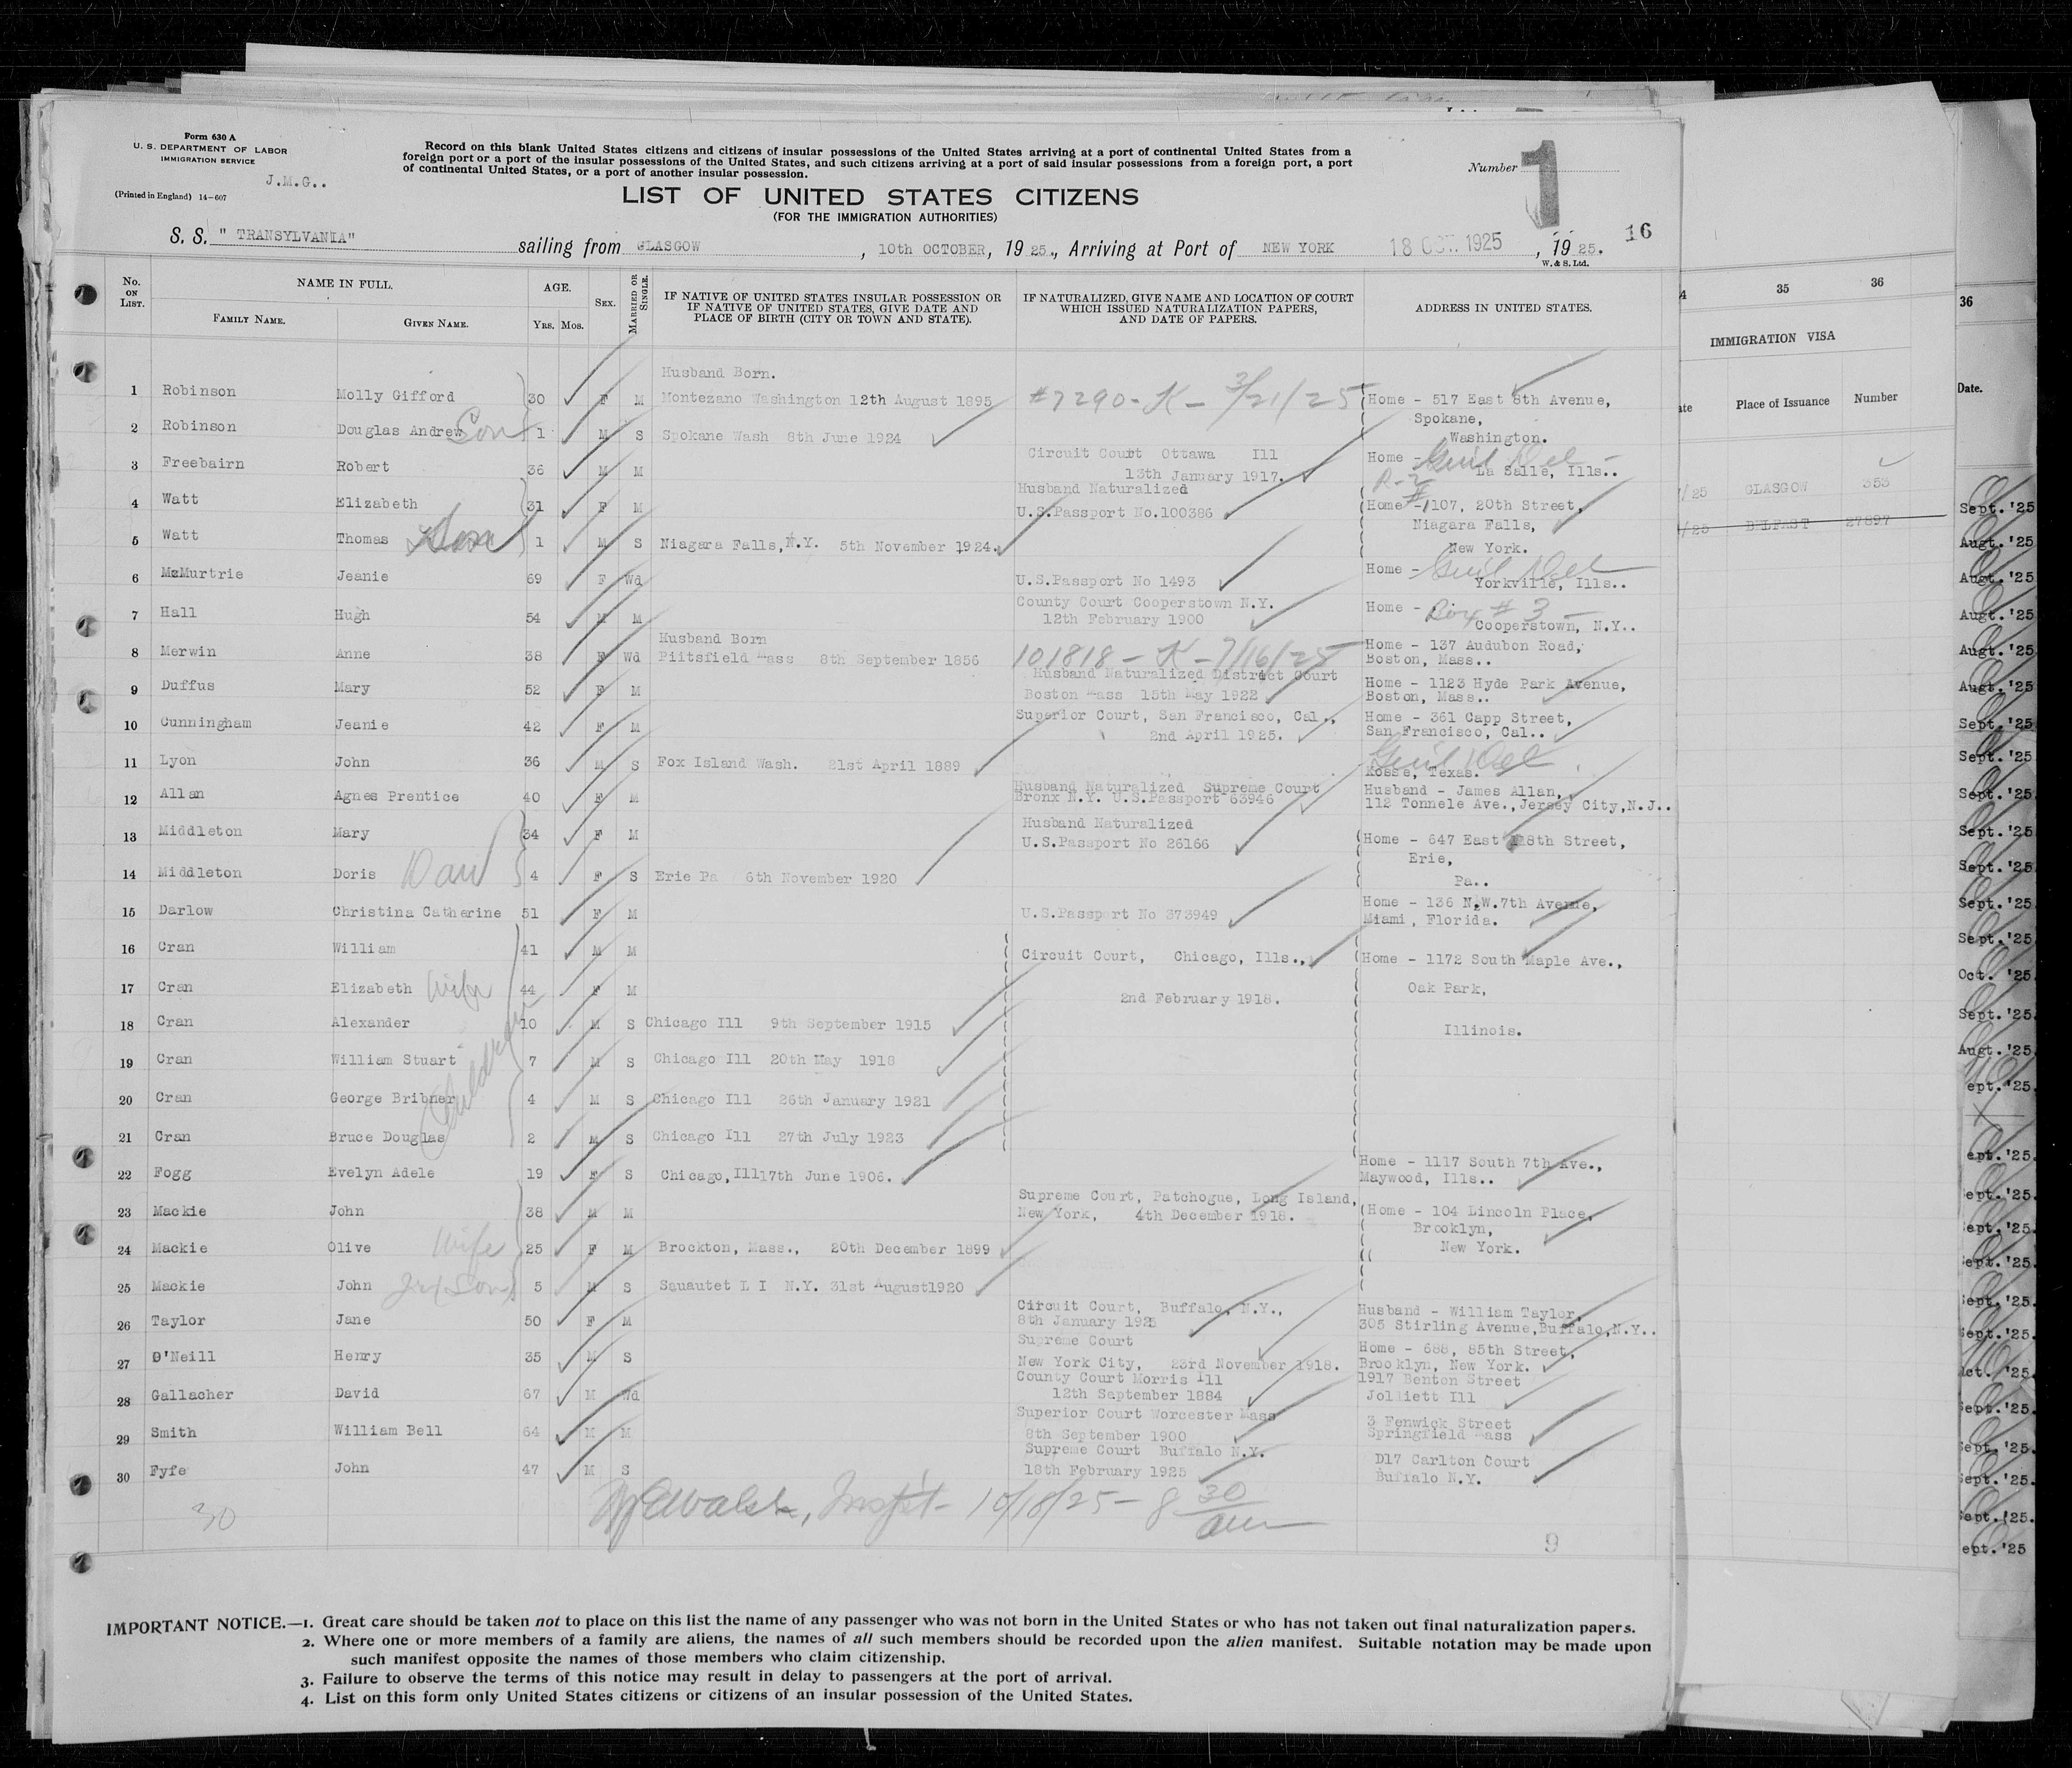 Form 630 A
U. S. DEPARTMENT OF LABOR
IMMIGRATION SERVICE
J.M.G..
(Printed in England) 14-607
Record on this blank United States citizens and citizens of insular possessions of the United States arriving at a port of continental United States from a
foreign port or a port of the insular possessions of the United States, and such citizens arriving at a port of said insular possessions from a foreign port, a port
of continental United States, or a port of another insular possession.
Number 1
LIST OF UNITED STATES CITIZENS
(FOR THE IMMIGRATION AUTHORITIES)
16
S. S. "TRANSYLVANIA" sailing from GLASGOW, 10th OCTOBER, 1925., Arriving at Port of NEW YORK 18 OCT. 1925, 1925.
W. & S. Ltd.
No. ON LIST.
NAME IN FULL.
FAMILY NAME.
GIVEN NAME.
AGE.
YRS. MOS.
SEX.
MARRIED OR SINGLE.
IF NATIVE OF UNITED STATES INSULAR POSSESSION OR
IF NATIVE OF UNITED STATES, GIVE DATE AND
PLACE OF BIRTH (CITY OR TOWN AND STATE).
IF NATURALIZED, GIVE NAME AND LOCATION OF COURT
WHICH ISSUED NATURALIZATION PAPERS,
AND DATE OF PAPERS.
ADDRESS IN UNITED STATES.
Husband Born.
1 Robinson Molly Gifford 30 F M Montezano Washington 12th August 1895 #7290-K-3/21/25 Home - 517 East 8th Avenue,
Spokane,
2 Robinson Douglas Andrew Son 1 M S Spokane Wash 8th June 1924 Washington.
3 Freebairn Robert 36 M M Circuit Court Ottawa Ill Home - Genl Del -
13th January 1917. La Salle, Ills..
R-2
4 Watt Elizabeth 31 F M Husband Naturalized
U.S.Passport No.100386 Home - #1107, 20th Street,
Niagara Falls,
5 Watt Thomas Son 1 M S Niagara Falls,N.Y. 5th November 1924. New York.
6 McMurtrie Jeanie 69 F Wd U.S.Passport No 1493 Home - Genl Del
Yorkville, Ills..
7 Hall Hugh 54 M M County Court Cooperstown N.Y.
12th February 1900 Home - Box #3 -
Cooperstown, N.Y..
Husband Born
8 Merwin Anne 38 F Wd Piitsfield Mass 8th September 1856 101818-K-7/16/25 Home - 137 Audubon Road,
Boston, Mass..
9 Duffus Mary 52 F M Husband Naturalized District Court
Boston Mass 15th May 1922 Home - 1123 Hyde Park Avenue,
Boston, Mass..
10 Cunningham Jeanie 42 F M Superior Court, San Francisco, Cal.,
2nd April 1925. Home - 361 Capp Street,
San Francisco, Cal..
11 Lyon John 36 M S Fox Island Wash. 21st April 1889 Genl Del
Kosse, Texas.
12 Allan Agnes Prentice 40 F M Husband Naturalized Supreme Court
Bronx N.Y. U.S.Passport 63946 Husband - James Allan,
112 Tonnele Ave.,Jersey City,N.J..
13 Middleton Mary 34 F M Husband Naturalized
U.S.Passport No 26166 Home - 647 East 28th Street,
Erie,
14 Middleton Doris Dau 4 F S Erie Pa 6th November 1920 Pa..
15 Darlow Christina Catherine 51 F M U.S.Passport No 373949 Home - 136 N.W.7th Avenue,
Miami, Florida.
16 Cran William 41 M M Circuit Court, Chicago, Ills., Home - 1172 South Maple Ave.,
17 Cran Elizabeth Wife 44 F M 2nd February 1918. Oak Park,
18 Cran Alexander 10 M S Chicago Ill 9th September 1915 Illinois.
19 Cran William Stuart 7 M S Chicago Ill 20th May 1918
20 Cran George Bribner 4 M S Chicago Ill 26th January 1921
21 Cran Bruce Douglas 2 M S Chicago Ill 27th July 1923
Children
22 Fogg Evelyn Adele 19 F S Chicago,Ill17th June 1906. Home - 1117 South 7th Ave.,
Maywood, Ills..
23 Mackie John 38 M M Supreme Court, Patchogue, Long Island,
New York, 4th December 1918. Home - 104 Lincoln Place,
Brooklyn,
24 Mackie Olive Wife 25 F M Brockton, Mass., 20th December 1899 New York.
25 Mackie John Jr Son 5 M S Sauautet L I N.Y. 31st August1920
26 Taylor Jane 50 F M Circuit Court, Buffalo, N.Y.,
8th January 1925 Husband - William Taylor,
305 Stirling Avenue,Buffalo,N.Y..
27 O'Neill Henry 35 M S Supreme Court
New York City, 23rd November 1918. Home - 688, 85th Street,
Brooklyn, New York.
28 Gallacher David 67 M Wd County Court Morris Ill
12th September 1884 1917 Benton Street
Jolliett Ill
29 Smith William Bell 64 M M Superior Court Worcester Mass
8th September 1900 3 Fenwick Street
Springfield Mass
30 Fyfe John 47 M S Supreme Court Buffalo N.Y.
18th February 1925 D17 Carlton Court
Buffalo N.Y.
30
Walsh, Inspt- 10/18/25 - 8 30 am
9
IMPORTANT NOTICE.—1. Great care should be taken not to place on this list the name of any passenger who was not born in the United States or who has not taken out final naturalization papers.
2. Where one or more members of a family are aliens, the names of all such members should be recorded upon the alien manifest. Suitable notation may be made upon
such manifest opposite the names of those members who claim citizenship.
3. Failure to observe the terms of this notice may result in delay to passengers at the port of arrival.
4. List on this form only United States citizens or citizens of an insular possession of the United States.
35 36
IMMIGRATION VISA
Place of Issuance Number
/25 GLASGOW 353
/25 BELFAST 27897
36
Date.
Sept.'25
Augt.'25
Augt.'25
Augt.'25
Augt.'25
Augt.'25
Sept.'25
Sept.'25
Sept.'25
Sept.'25
Sept.'25
Sept.'25
Sept.'25
Oct.'25
Sept.'25
Augt.'25
ept.'25
ept.'25
ept.'25
ept.'25
ept.'25
ept.'25
ept.'25
ct.'25
ept.'25
ept.'25
ept.'25
ept.'25
ept.'25